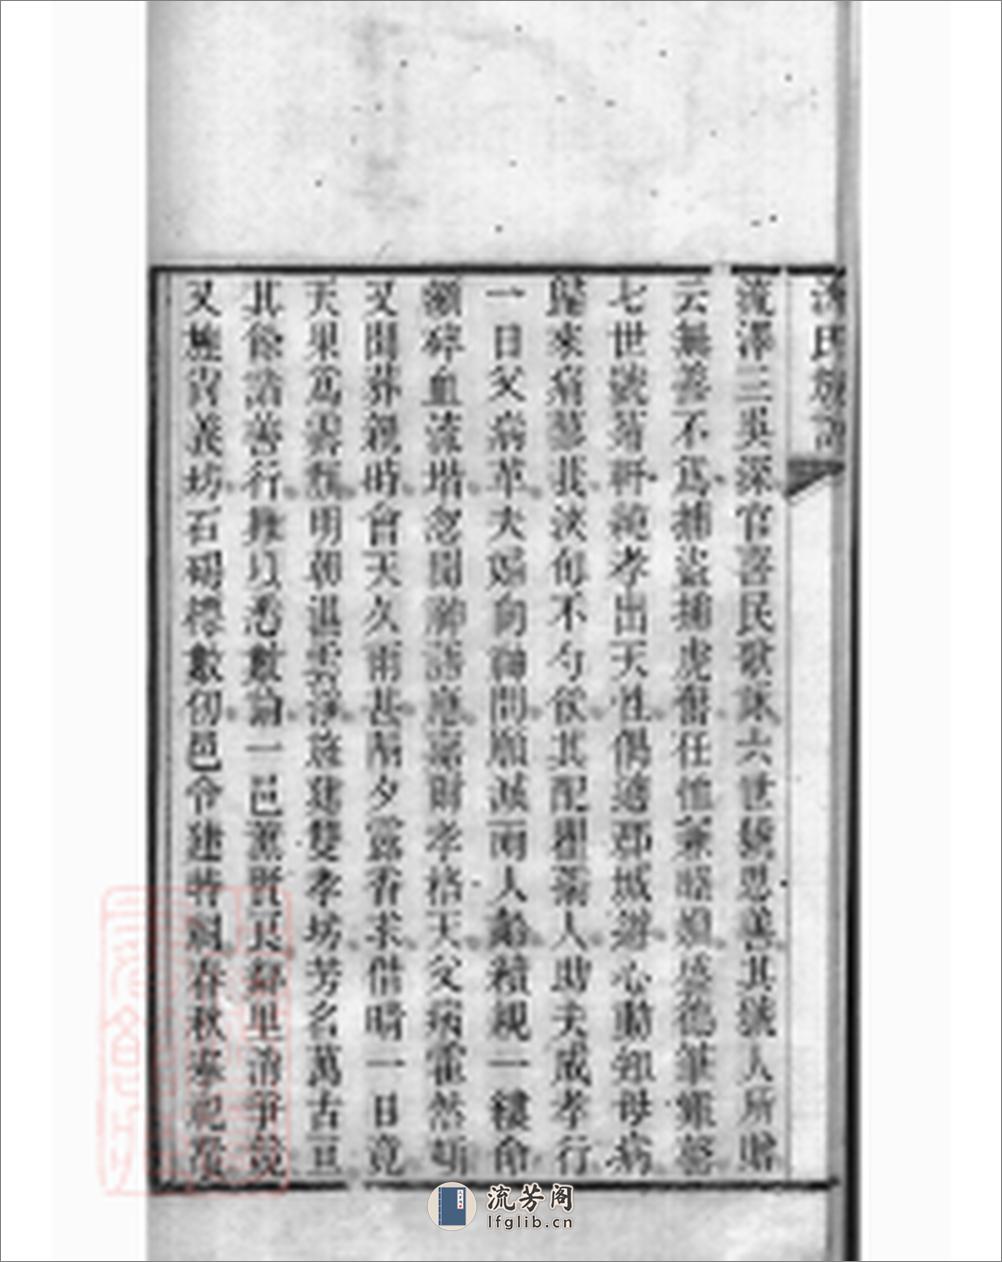 氏族
流澤三吳深官喜民歌詠六世號思善其號人所贈
云無善不爲捕盜捕虎奮任恤兼睦姻盛德筆難
七世號菊軒純孝出天性偶適郡城遊心動知母病
歸來病甚淡每不勺飲其配瞿孺人助夫成孝行
一日父病革夫婦向神問願減兩人齡續親一縷命
額碎血流堦忽聞神語應嘉爾孝格天父病霍然
又聞葬親時會天久雨甚陽夕露香求借晴一日竟
天果爲霽顏明朝湛雲淨旌建雙孝坊芳名萬古亘
其餘諸善行難以悉數論一邑薰賢良鄰里消爭競
又旌尚義坊石碣標數仞邑令建特祠春秋奉祀
流芳阁
lfglib.cn